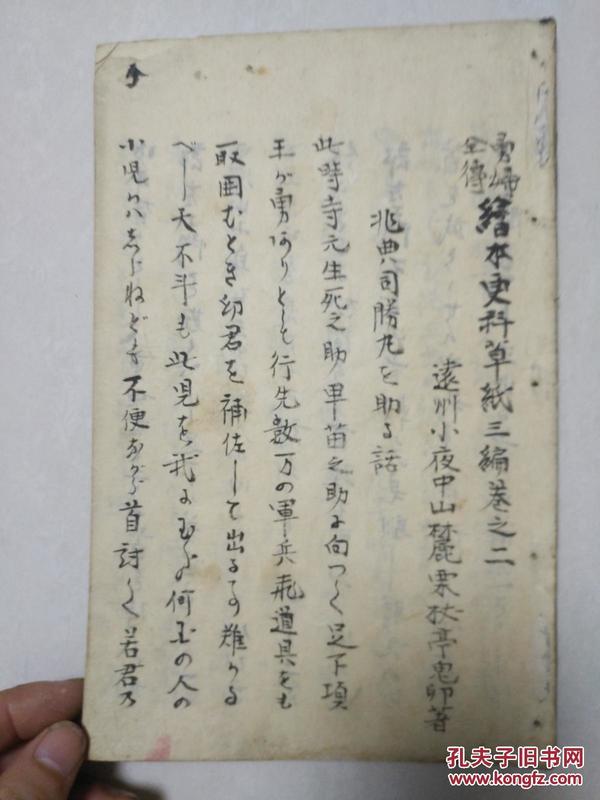 勇婦
全傳 繪本更科草紙三編巻之二
遠州小夜中山麓栗杖亭鬼卵著
兆典司勝丸を助る話
此時寺元生死之助早苗之助に向つて足下項
王が勇ありとも行先数万の軍兵飛道具をも
取囲むとき幼君を補佐して出る事難かる
べし天不斗も此児を我に玉ふ何玉の人の
小児かはしらねども不便ながら首討て若君の
孔夫子旧书网
www.kongfz.com